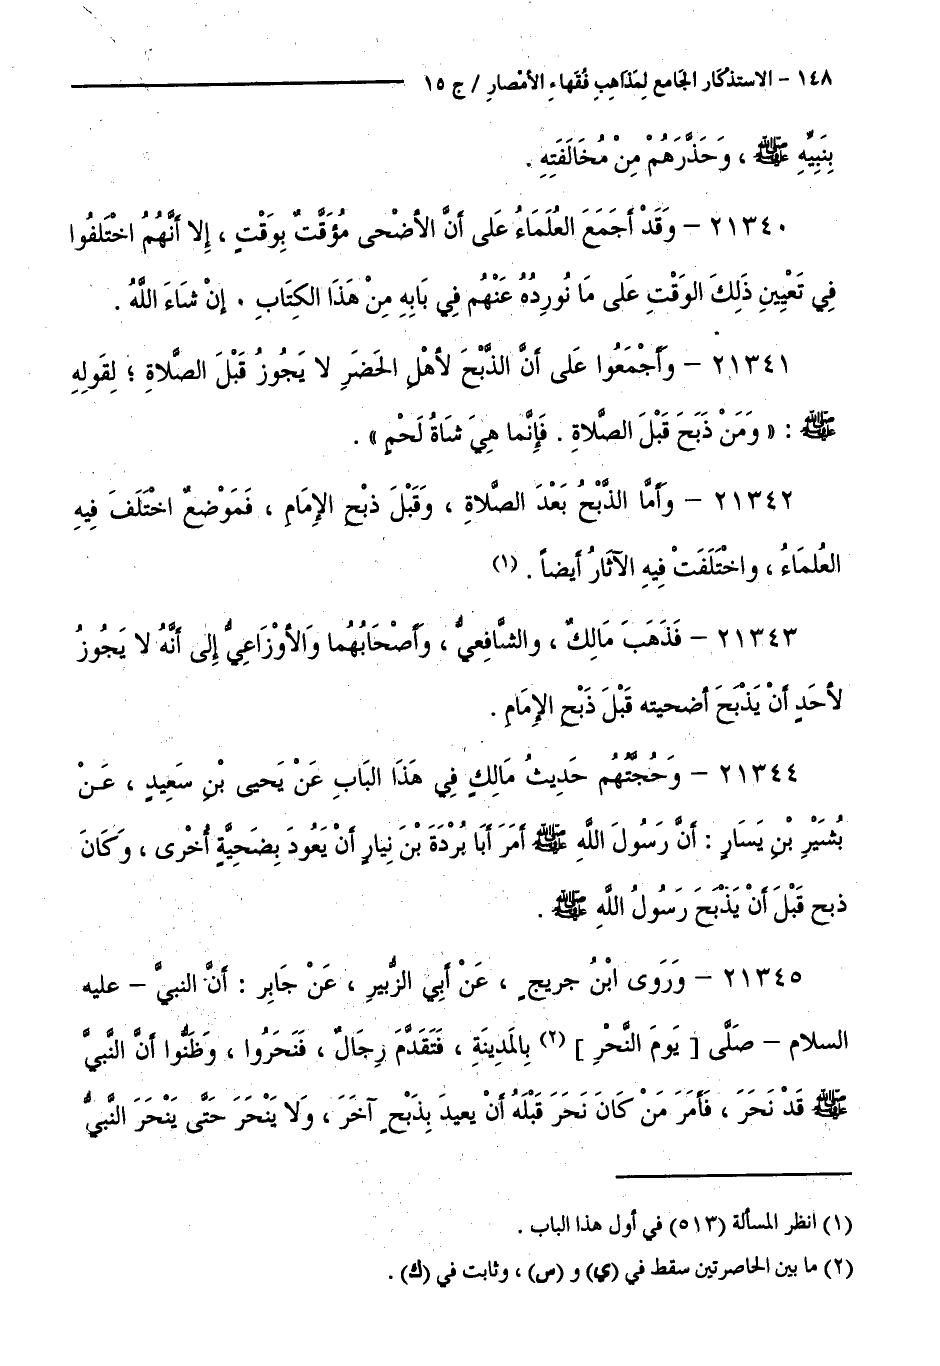 ١٤٨ - الاستذكار الجامع لِمَذَاهِبِ فُقَهاءِ الأمْصارِ / ج ١٥
بِنَبِيِّهِ ﷺ ، وَحَذَّرَهُمْ مِنْ مُخَالَفَتِهِ .
٢١٣٤٠ - وَقَدْ أجَمَعَ العُلَمَاءُ عَلى أنَّ الأضْحى مُؤَقَّتٌ بِوَقْتٍ ، إلا أنَّهُمُ اخْتَلفُوا
فِي تَعْيِينِ ذَلِكَ الوَقْتِ عَلى مَا نُورِدُهُ عَنْهُم فِي بَابِهِ مِنْ هَذَا الكِتَابِ ٠ إنْ شَاءَ اللَّهُ .
٢١٣٤١ - وَأجْمَعُوا عَلى أنَّ الذَّبْحَ لأهْلِ الحَضَرِ لا يَجُوزُ قَبْلَ الصَّلاةِ ؛ لِقَولِهِ
ﷺ : « وَمَنْ ذَبَحَ قَبْلَ الصَّلاةِ . فَإِنَّما هِيَ شَاةُ لَحْمٍ » .
٢١٣٤٢ - وَأمَّا الذَّبْحُ بَعْدَ الصَّلاةِ ، وَقَبْلَ ذبْحِ الإمَامِ ، فَمَوْضعٌ اخْتَلَفَ فِيهِ
العُلمَاءُ ، واخْتَلَفَتْ فِيهِ الآثَارُ أيضاً . (١)
٢١٣٤٣ - فَذَهَبَ مَالِكٌ ، والشَّافِعيُّ ، وَأصْحَابُهُما وَالأوْزَاعِيُّ إلى أنَّهُ لا يَجُوزُ
لأحَدٍ أنْ يَذْبَحَ أضحيته قَبْلَ ذَبْحِ الإمَامِ .
٢١٣٤٤ - وَحُجَّتُهُم حَدِيثُ مَالِكٍ فِي هَذَا البَابِ عَنْ يَحيى بْنِ سَعِيدٍ ، عَنْ
بُشَيْرِ بْنِ يَسَارٍ : أنَّ رَسُولَ اللَّهِ ﷺ أمَرَ أبَا بُرْدَةَ بْنَ نِيارٍ أنْ يَعُودَ بِضَحِيَّةٍ أُخْرى ، وكَانَ
ذبح قَبْلَ أنْ يَذْبَحَ رَسُولُ اللَّهِ ﷺ .
٢١٣٤٥ - وَرَوى ابْنُ جريجٍ ، عَنْ أبِي الزُّبيرِ ، عَنْ جَابِر : أنَّ النبيَّ - عليه
السلام - صَلَّى [ يَومَ النَّحْرِ ] (٢) بِالمَدِينَةِ ، فَتَقَدَّمَ رِجَالٌ ، فَنَحَرُوا ، وَظَنُّوا أنَّ النَّبيَّ
ﷺ قَدْ نَحَرَ ، فَأمَرَ مَنْ كَانَ نَحَرَ قَبْلَهُ أنْ يعيدَ بِذَبْحٍ آخَرَ ، وَلا يَنْحَرَ حَتَّى يَنْحَرَ النَّبيُّ
(١) انظر المسألة (٥١٣) في أول هذا الباب .
(٢) ما بين الحاصرتين سقط في (ي) و (س) ، وثابت في (ك) .